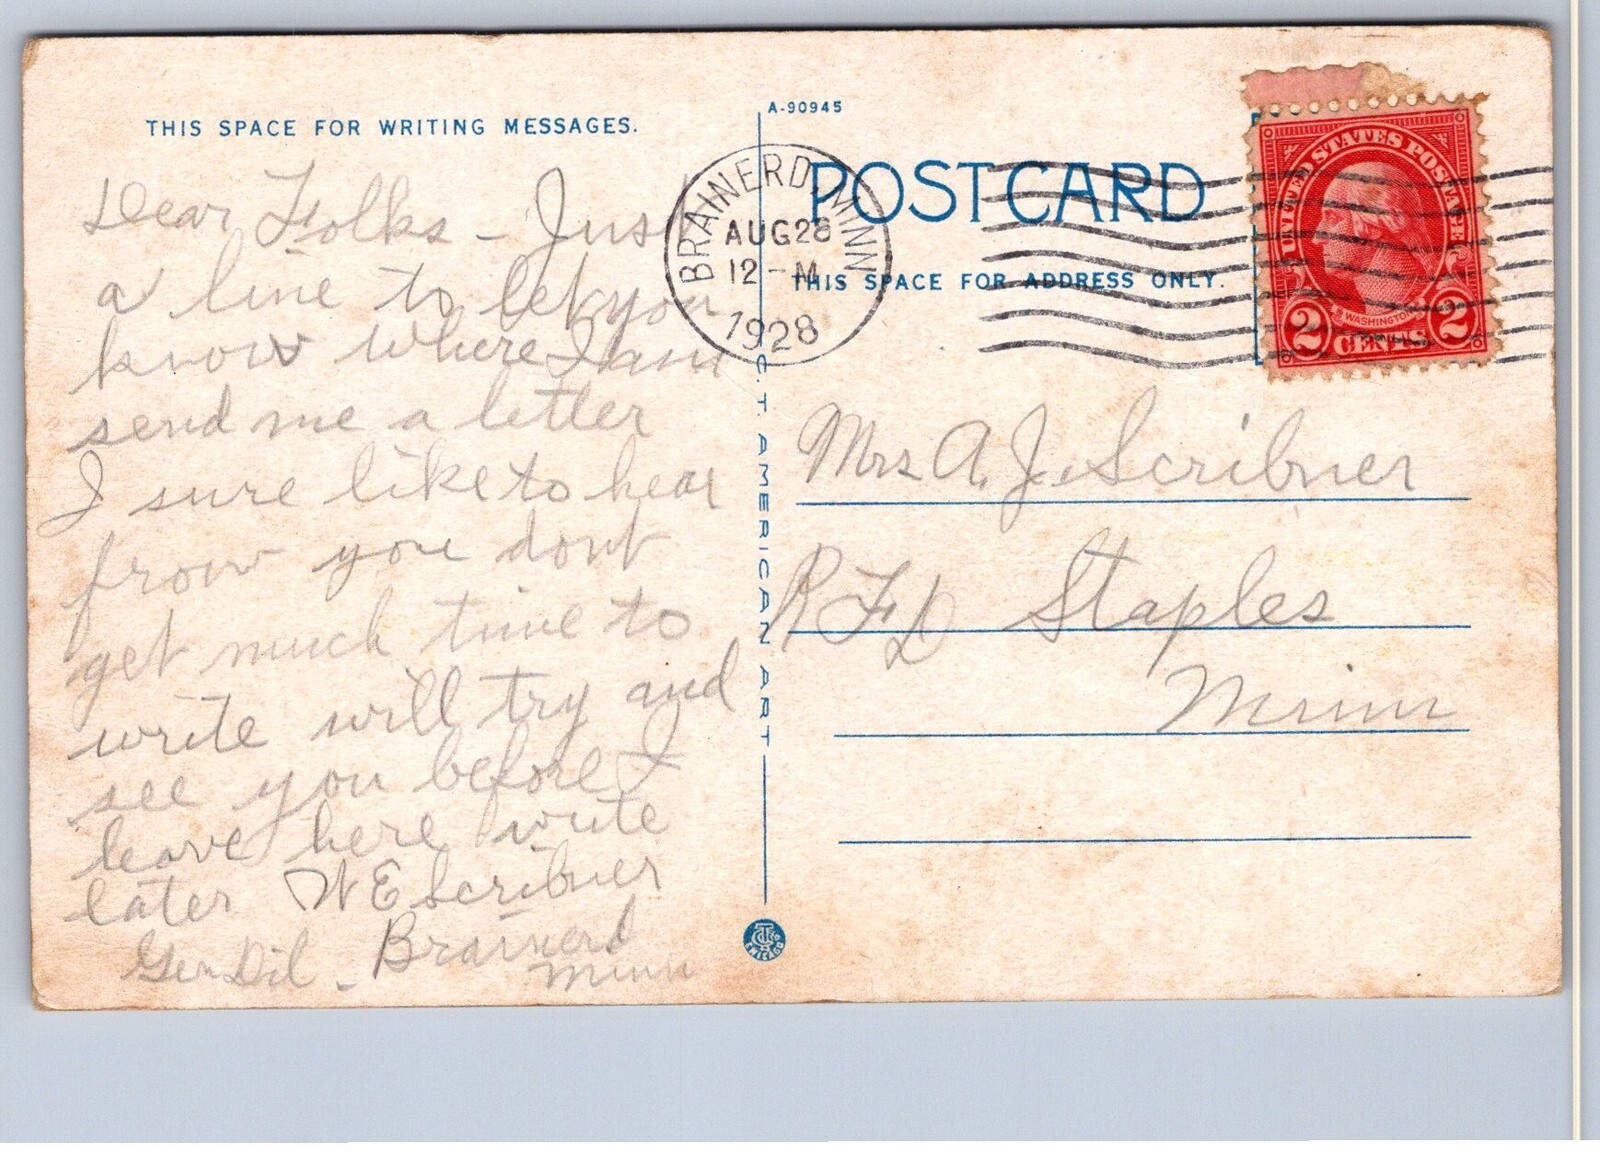 THIS SPACE FOR WRITING MESSAGES.
Dear Folks - Just
a line to let you
know where I am
send me a letter
I sure like to hear
from you dont
get much time to
write will try and
see you before I
leave here write
later W E Scribner
Gen Dil - Brainerd
Minn
A-90945
POST CARD
THIS SPACE FOR ADDRESS ONLY.
BRAINERD, MINN
AUG 28
12 - M
1928
UNITED STATES POSTAGE
WASHINGTON
2 CENTS 2
C. T. AMERICAN ART
Mrs A. J. Scribner
R F D Staples
Minn
CHICAGO